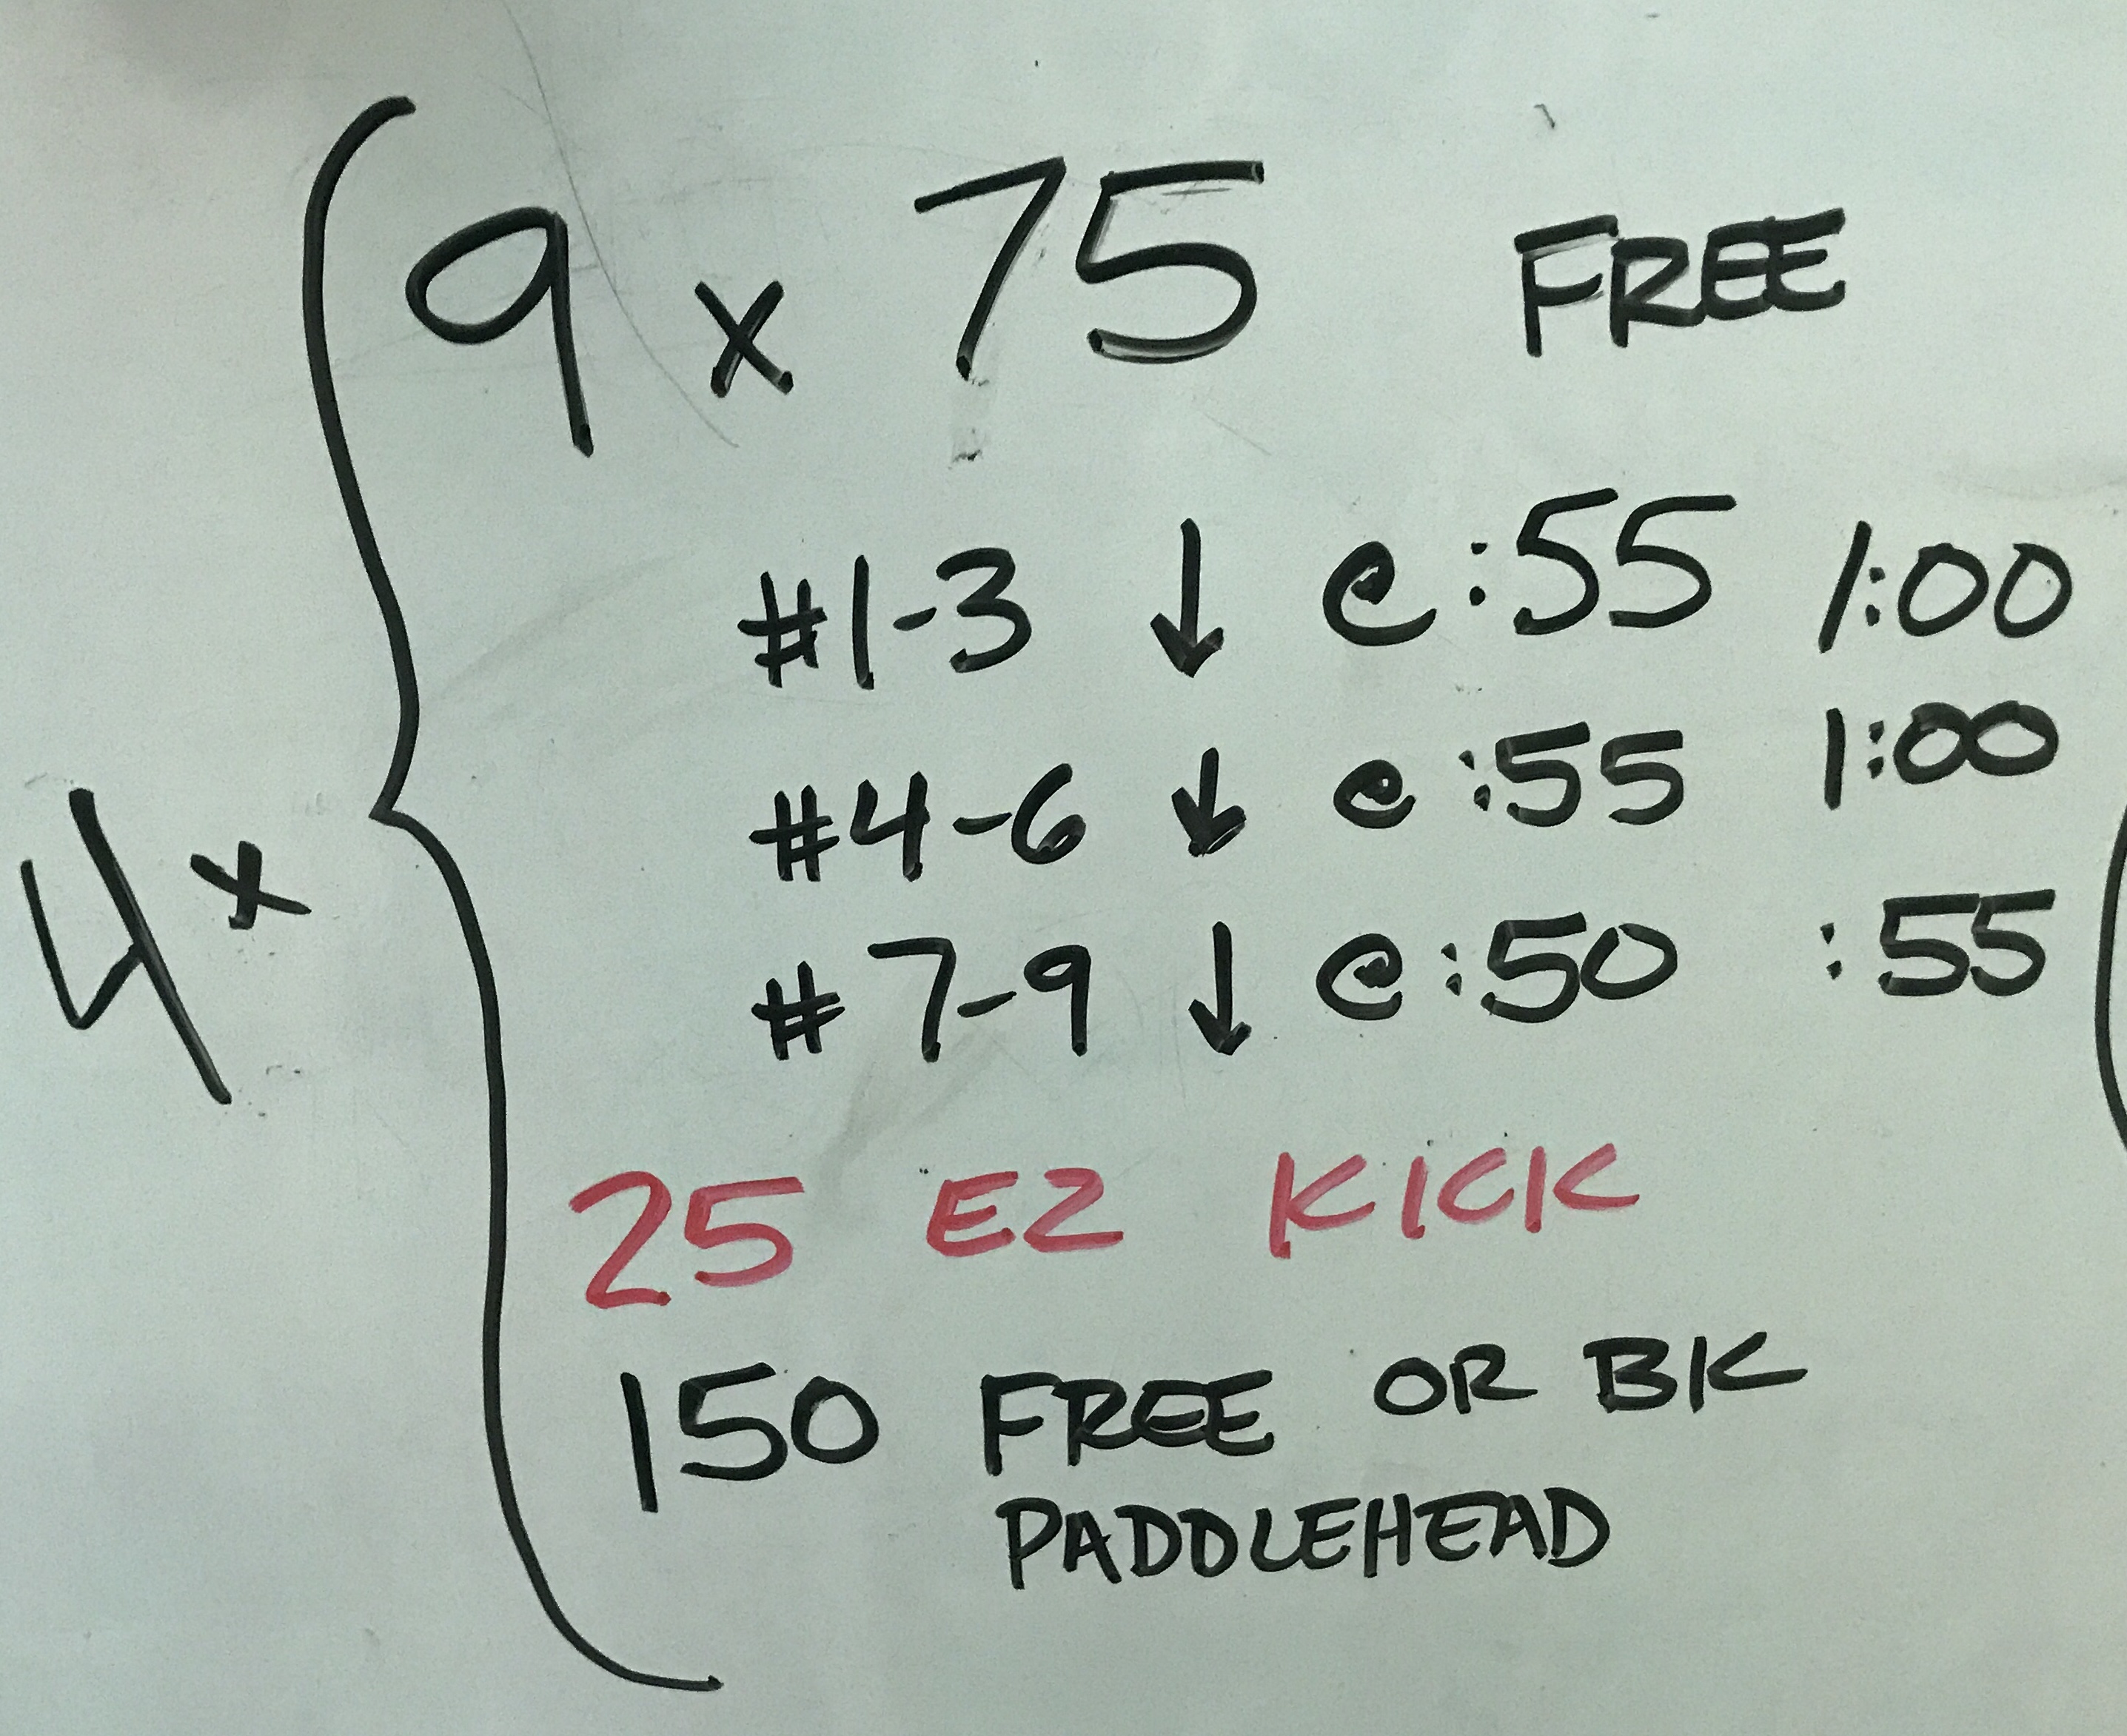 9 x 75 FREE
#1-3 ↓ @ :55 1:00
#4-6 ↓ @ :55 1:00
4 x
#7-9 ↓ @ :50 :55
25 EZ KICK
150 FREE OR BK
PADDLEHEAD